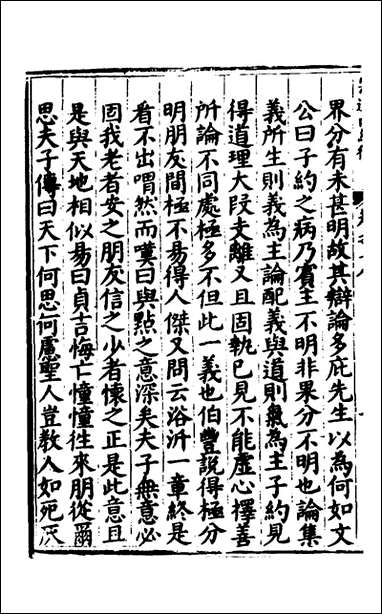 界分有未甚明故其辯論多疵先生以為何如文
公曰子約之病乃賓主不明非果分不明也論集
義所生則義為主論配義與道則氣為主子約見
得道理大段支離又且固執已見不能虛心擇善
所論不同處極多不但此一義也伯豐說得極分
明朋友間極不易得人傑又問云浴沂一章終是
看不出喟然而嘆曰與點之意深矣夫子無意必
固我老者安之朋友信之少者懷之正是此意且
是與天地相似易曰貞吉悔亡憧憧往來朋從爾
思夫子傳曰天下何思何慮聖人豈教人如死灰